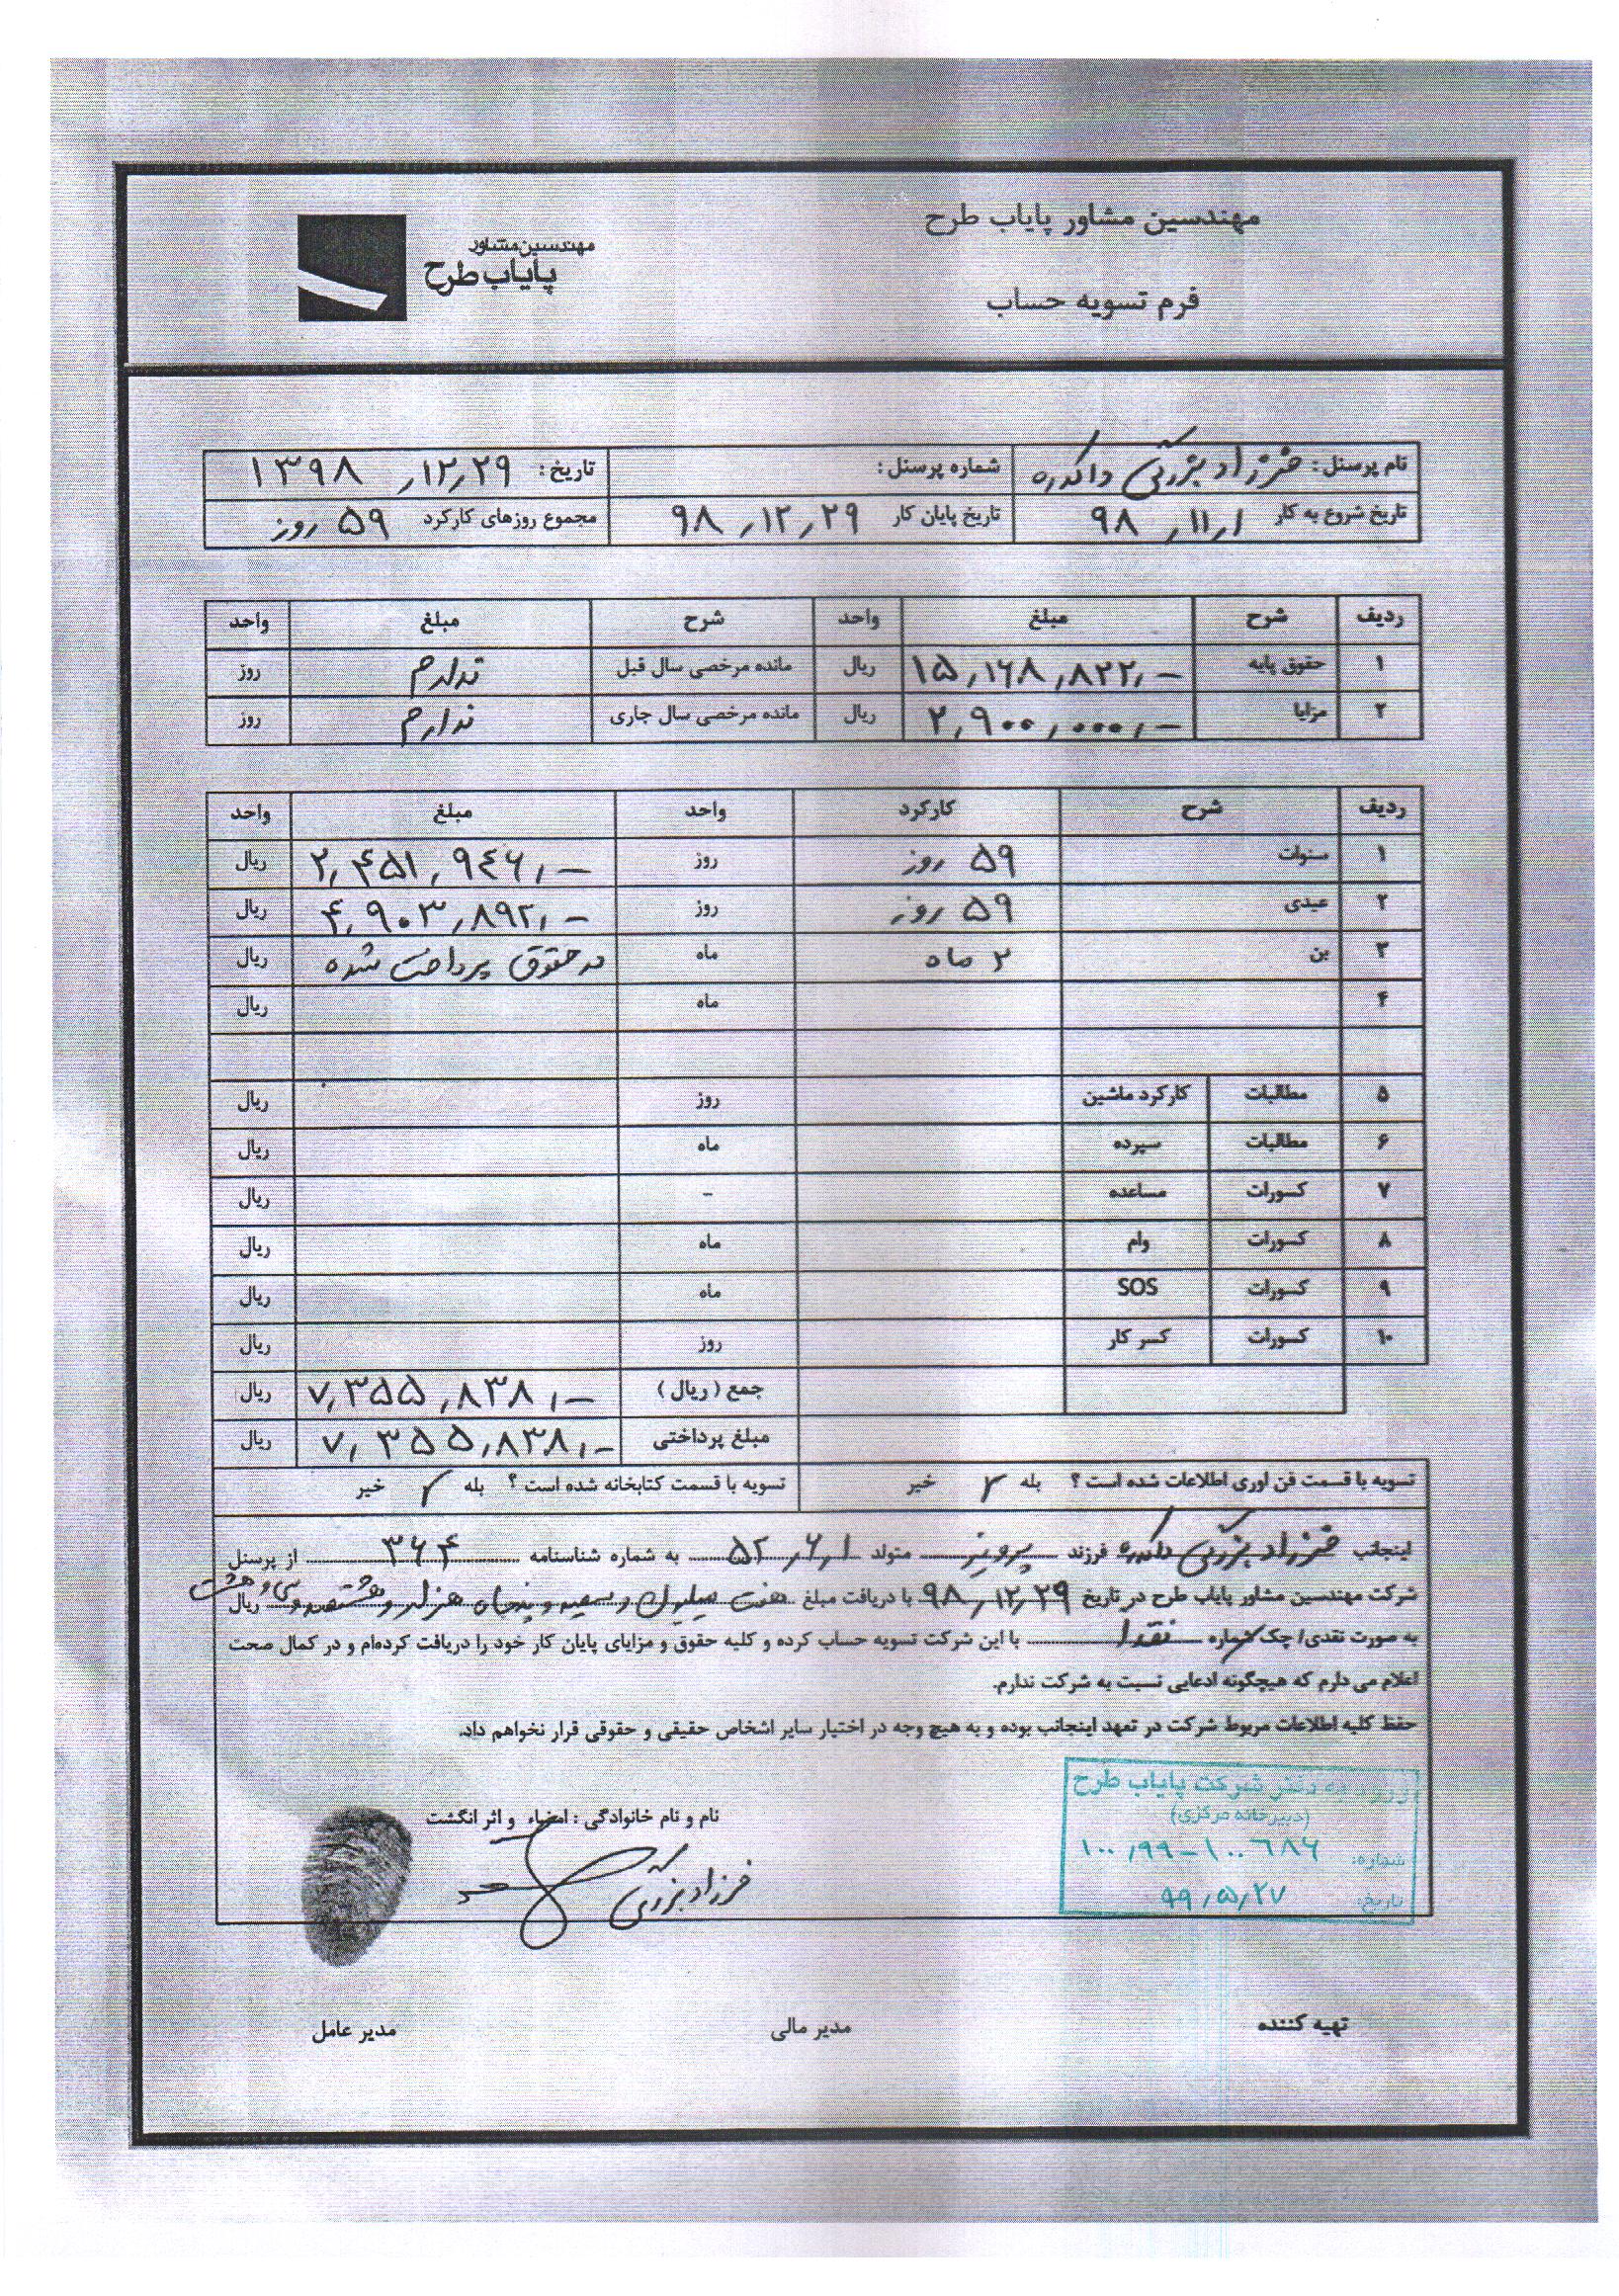 مهندسین مشاور پایاب طرح
مهندسین مشاور
پایاب طرح
فرم تسویه حساب
نام پرسنل : فرزاد بزرگی داکدره شماره پرسنل : تاریخ : ۱۳۹۸٫۱۲٫۲۹
تاریخ شروع به کار ۹۸٫۱۱٫۱ تاریخ پایان کار ۹۸٫۱۲٫۲۹ مجموع روزهای کارکرد ۵۹ روز
ردیف شرح مبلغ واحد شرح مبلغ واحد
۱ حقوق پایه ۱۵٫۱۶۸٫۸۲۲٫- ریال مانده مرخصی سال قبل ندارم روز
۲ مزایا ۲٫۹۰۰٫۰۰۰٫- ریال مانده مرخصی سال جاری ندارم روز
ردیف شرح کارکرد واحد مبلغ واحد
۱ سنوات ۵۹ روز روز ۲٫۴۵۱٫۹۴۶٫- ریال
۲ عیدی ۵۹ روز روز ۴٫۹۰۳٫۸۹۲٫- ریال
۳ بن ۲ ماه ماه در حقوق پرداخت شده ریال
۴ ماه ریال
۵ مطالبات کارکرد ماشین روز ریال
۶ مطالبات سپرده ماه ریال
۷ کسورات مساعده - ریال
۸ کسورات وام ماه ریال
۹ کسورات SOS ماه ریال
۱۰ کسورات کسر کار روز ریال
جمع ( ریال ) ۷٫۳۵۵٫۸۳۸٫- ریال
مبلغ پرداختی ۷٫۳۵۵٫۸۳۸٫- ریال
تسویه با قسمت فن اوری اطلاعات شده است ؟ بله ✓ خیر تسویه با قسمت کتابخانه شده است ؟ بله ✓ خیر
اینجانب فرزاد بزرگی داکدره فرزند پرویز متولد ۵۲٫۶٫۱ به شماره شناسنامه ۳۶۴ از پرسنل
شرکت مهندسین مشاور پایاب طرح در تاریخ ۹۸٫۱۲٫۲۹ با دریافت مبلغ هفت میلیون و سیصد و پنجاه هزار و هشتصد و سی و هشت ریال
به صورت نقدی/ چک شماره نقدا با این شرکت تسویه حساب کرده و کلیه حقوق و مزایای پایان کار خود را دریافت کرده‌ام و در کمال صحت
اعلام می دارم که هیچگونه ادعایی نسبت به شرکت ندارم.
حفظ کلیه اطلاعات مربوط شرکت در تعهد اینجانب بوده و به هیچ وجه در اختیار سایر اشخاص حقیقی و حقوقی قرار نخواهم داد.
نام و نام خانوادگی : امضاء و اثر انگشت
فرزاد بزرگی
ورود به دفتر شرکت پایاب طرح
(دبیرخانه مرکزی)
شماره: ۱۰۰٫۹۹-۱۰۰۶۸۶
تاریخ: ۹۹٫۵٫۲۷
تهیه کننده مدیر مالی مدیر عامل